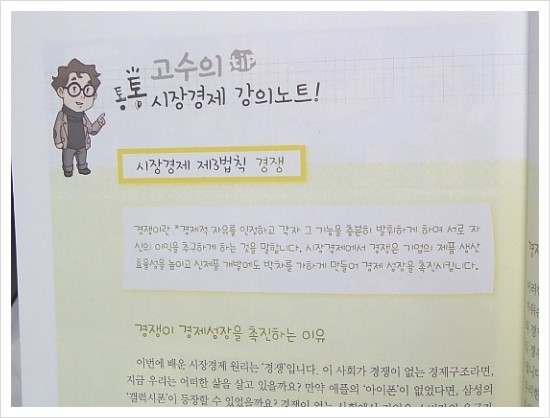 고수의
통통 시장경제 강의노트!
시장경제 제3법칙 경쟁
경쟁이란 "경제적 자유를 인정하고 각자 그 기능을 충분히 발휘하게 하여 서로 자
신의 이익을 추구하게 하는 것을 말합니다. 시장경제에서 경쟁은 기업의 제품 생산
효율성을 높이고 신제품 개발에도 박차를 가하게 만들어 경제 성장을 촉진시킵니다.
경쟁이 경제성장을 촉진하는 이유
이번에 배운 시장경제 원리는 '경쟁'입니다. 이 사회가 경쟁이 없는 경제구조라면,
지금 우리는 어떠한 삶을 살고 있을까요? 만약 애플의 '아이폰'이 없었다면, 삼성의
'갤럭시폰'이 등장할 수 있었을까요? 경쟁이 없는 사회에서